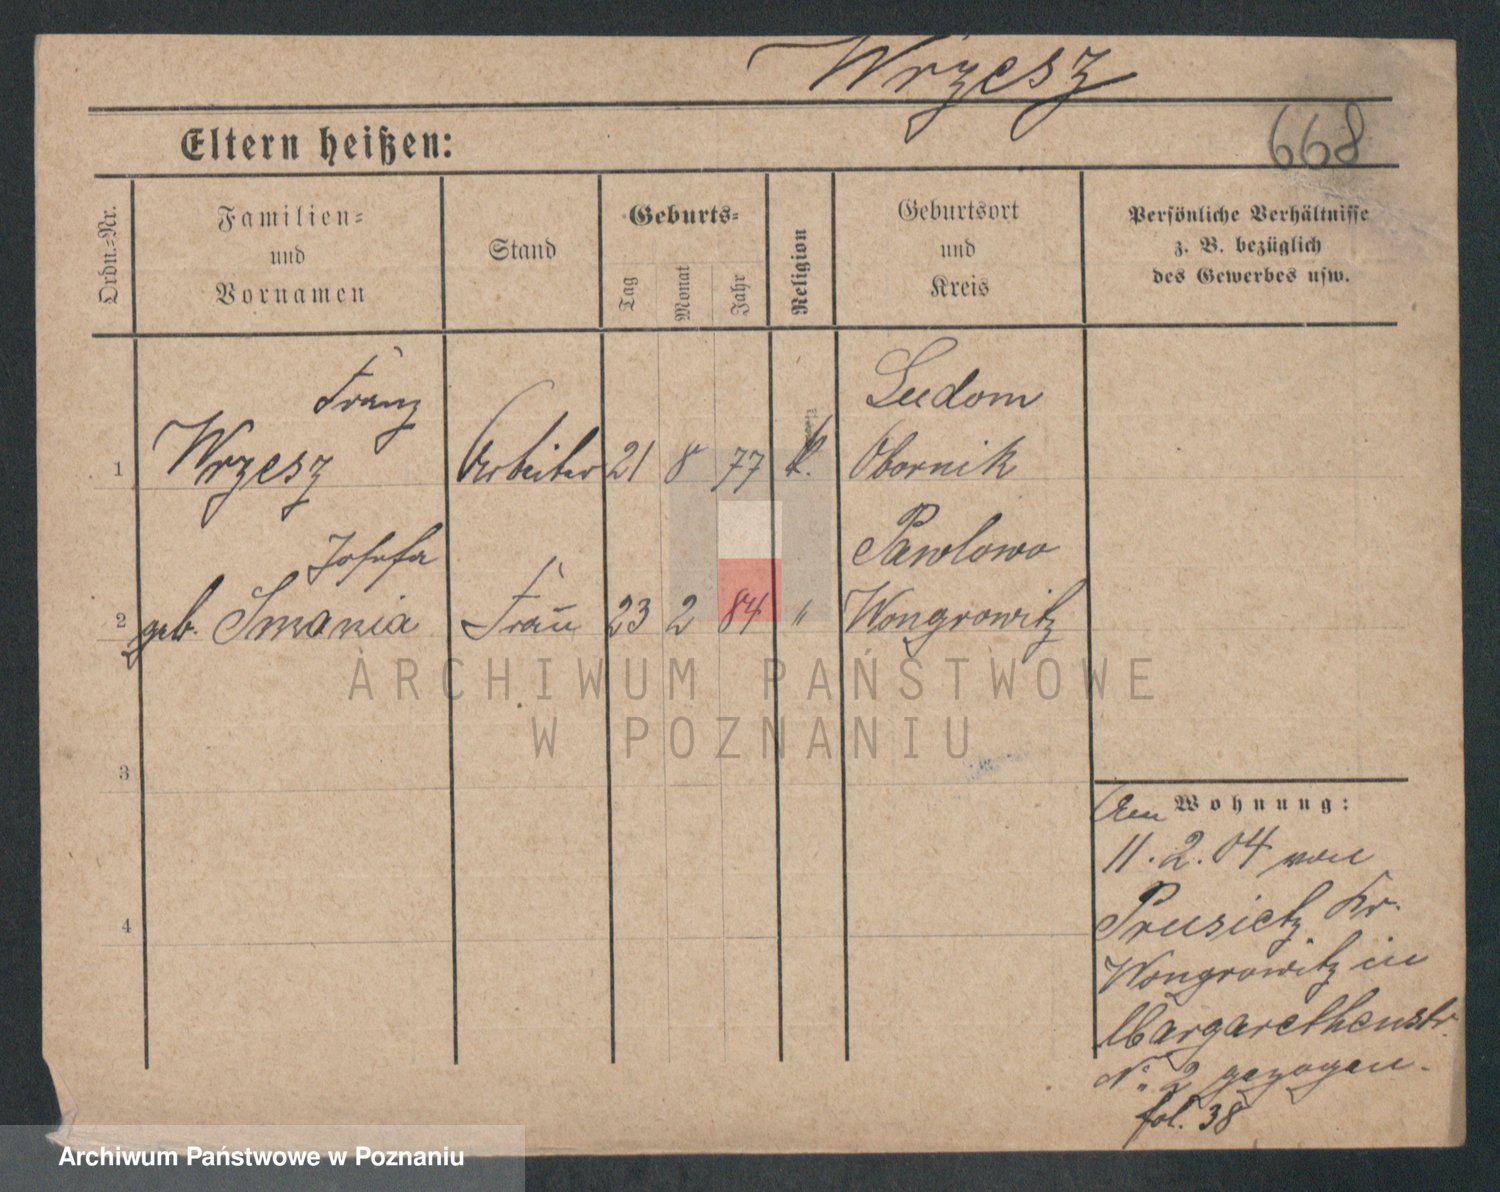 Wrzesz
668
Eltern heißen:
Ordn.=Nr.
Familien=
und
Vornamen
Stand
Geburts=
Tag
Monat
Jahr
Religion
Geburtsort
und
Kreis
Persönliche Verhältnisse
z. B. bezüglich
des Gewerbes usw.
Franz
Ludom
1 Wrzesz Arbeiter 21 8 77 k. Obornik
Josefa
Pawlowo
2 geb. Smania Frau 23 2 84 " Wongrowitz
ARCHIWUM PAŃSTWOWE
W POZNANIU
3
Am Wohnung:
11.2.04 von
4
Prusietz Kr.
Wongrowitz in
Margarethenstr.
No 2 gezogen.
fol. 38
Archiwum Państwowe w Poznaniu